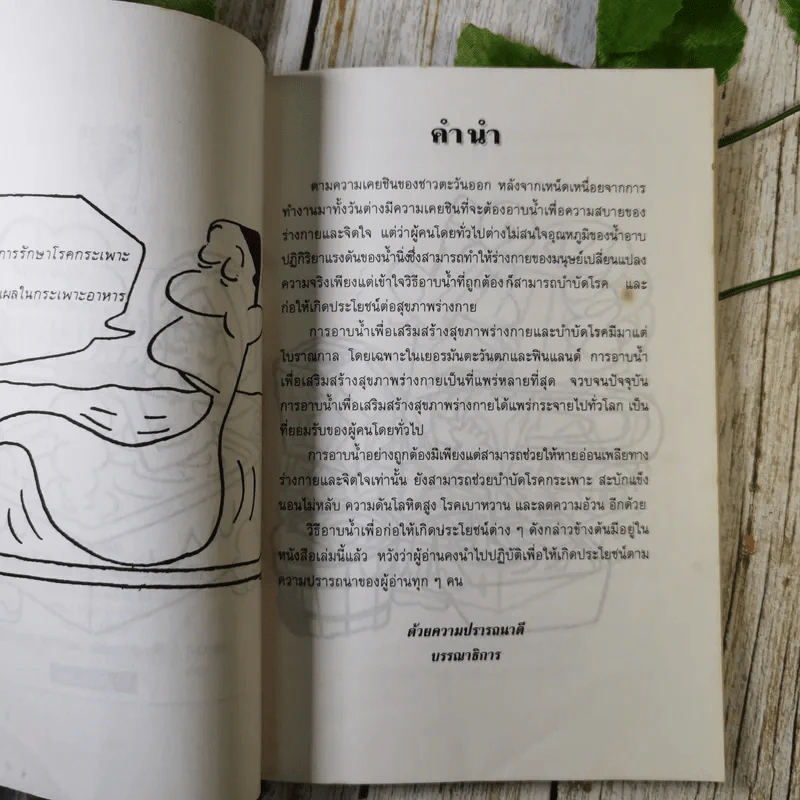 การรักษาโรคกระเพาะ
แผลในกระเพาะอาหาร
คำนำ
ตามความเคยชินของชาวตะวันออก หลังจากเหน็ดเหนื่อยจากการ
ทำงานมาทั้งวันต่างมีความเคยชินที่จะต้องอาบน้ำเพื่อความสบายของ
ร่างกายและจิตใจ แต่ว่าผู้คนโดยทั่วไปต่างไม่สนใจอุณหภูมิของน้ำอาบ
ปฏิกิริยาแรงดันของน้ำนิ่งซึ่งสามารถทำให้ร่างกายของมนุษย์เปลี่ยนแปลง
ความจริงเพียงแต่เข้าใจวิธีอาบน้ำที่ถูกต้องก็สามารถบำบัดโรค และ
ก่อให้เกิดประโยชน์ต่อสุขภาพร่างกาย
การอาบน้ำเพื่อเสริมสร้างสุขภาพร่างกายและบำบัดโรคมีมาแต่
โบราณกาล โดยเฉพาะในเยอรมันตะวันตกและฟินแลนด์ การอาบน้ำ
เพื่อเสริมสร้างสุขภาพร่างกายเป็นที่แพร่หลายที่สุด จวบจนปัจจุบัน
การอาบน้ำเพื่อเสริมสร้างสุขภาพร่างกายได้แพร่กระจายไปทั่วโลก เป็น
ที่ยอมรับของผู้คนโดยทั่วไป
การอาบน้ำอย่างถูกต้องมิเพียงแต่สามารถช่วยให้หายอ่อนเพลียทาง
ร่างกายและจิตใจเท่านั้น ยังสามารถช่วยบำบัดโรคกระเพาะ สะบักแข็ง
นอนไม่หลับ ความดันโลหิตสูง โรคเบาหวาน และลดความอ้วน อีกด้วย
วิธีอาบน้ำเพื่อก่อให้เกิดประโยชน์ต่าง ๆ ดังกล่าวข้างต้นมีอยู่ใน
หนังสือเล่มนี้แล้ว หวังว่าผู้อ่านคงนำไปปฏิบัติเพื่อให้เกิดประโยชน์ตาม
ความปรารถนาของผู้อ่านทุก ๆ คน
ด้วยความปรารถนาดี
บรรณาธิการ